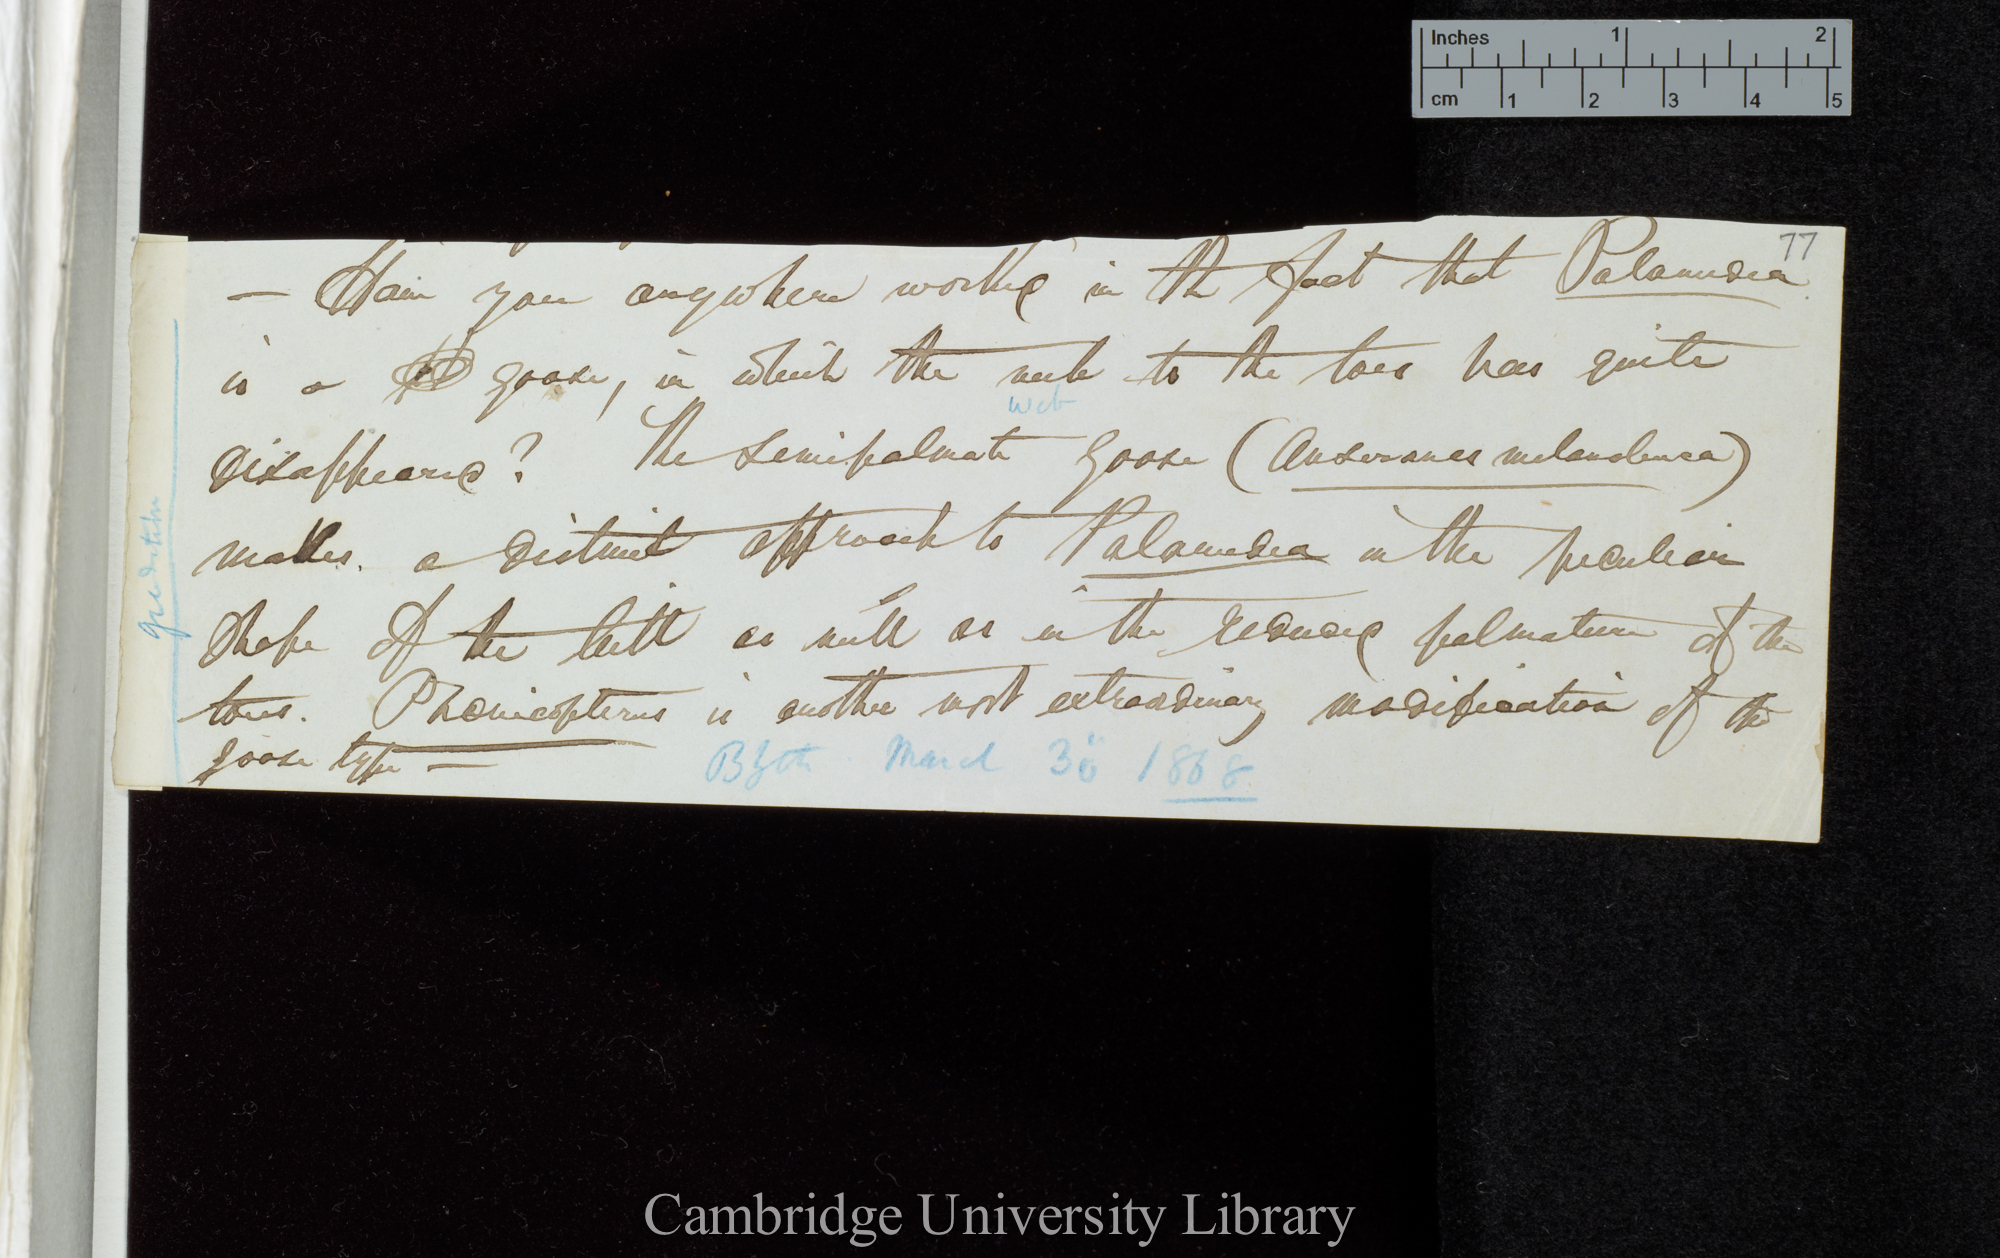 Inches 1 2
cm 1 2 3 4 5
77
— Have you anywhere worked in the fact that Palamedea
is a goose, in which the web to the toes has quite
web
disappeared? The semipalmate goose (Anseranas melanoleuca)
makes a distinct approach to Palamedea in the peculiar
shape of the bill as well as in the reduced palmature of the
toes. Phoenicopterus is another most extraordinary modification of the
goose type —
Blyth March 30 1868
Cambridge University Library